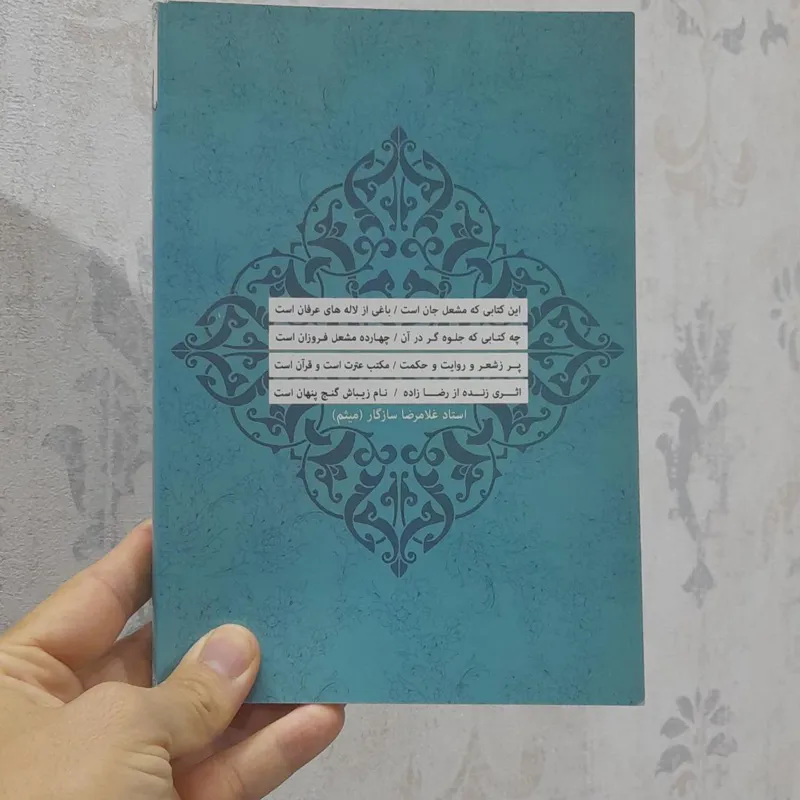 این کتابی که مشعل جان است / باغی از لاله های عرفان است
چه کتابی که جلوه گر در آن / چهارده مشعل فروزان است
پر زشعر و روایت و حکمت / مکتب عترت است و قرآن است
اثری زنده از رضا زاده / نام زیباش گنج پنهان است
استاد غلامرضا سازگار (میثم)